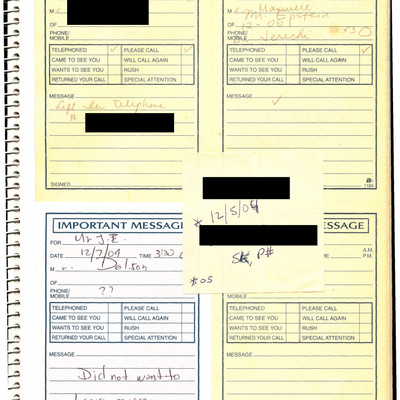 M
OF
PHONE/
MOBILE
TELEPHONED ✓ PLEASE CALL ✓
CAME TO SEE YOU WILL CALL AGAIN
WANTS TO SEE YOU RUSH
RETURNED YOUR CALL SPECIAL ATTENTION
MESSAGE
Left her telephone
#
SIGNED
M Maxwell
Mr. Epstein
OF
PHONE/
MOBILE
TELEPHONED PLEASE CALL
CAME TO SEE YOU WILL CALL AGAIN
WANTS TO SEE YOU RUSH
RETURNED YOUR CALL SPECIAL ATTENTION
MESSAGE ✓
1184
* 12/5/04
P#
*05
IMPORTANT MESSAGE
FOR Mr J.E.
DATE 12/7/04 TIME 3:30
M
OF
PHONE/
MOBILE ??
TELEPHONED PLEASE CALL
CAME TO SEE YOU WILL CALL AGAIN
WANTS TO SEE YOU RUSH
RETURNED YOUR CALL SPECIAL ATTENTION
MESSAGE
Did not want to
SSAGE
A.M.
P.M.
TELEPHONED PLEASE CALL
CAME TO SEE YOU WILL CALL AGAIN
WANTS TO SEE YOU RUSH
RETURNED YOUR CALL SPECIAL ATTENTION
MESSAGE